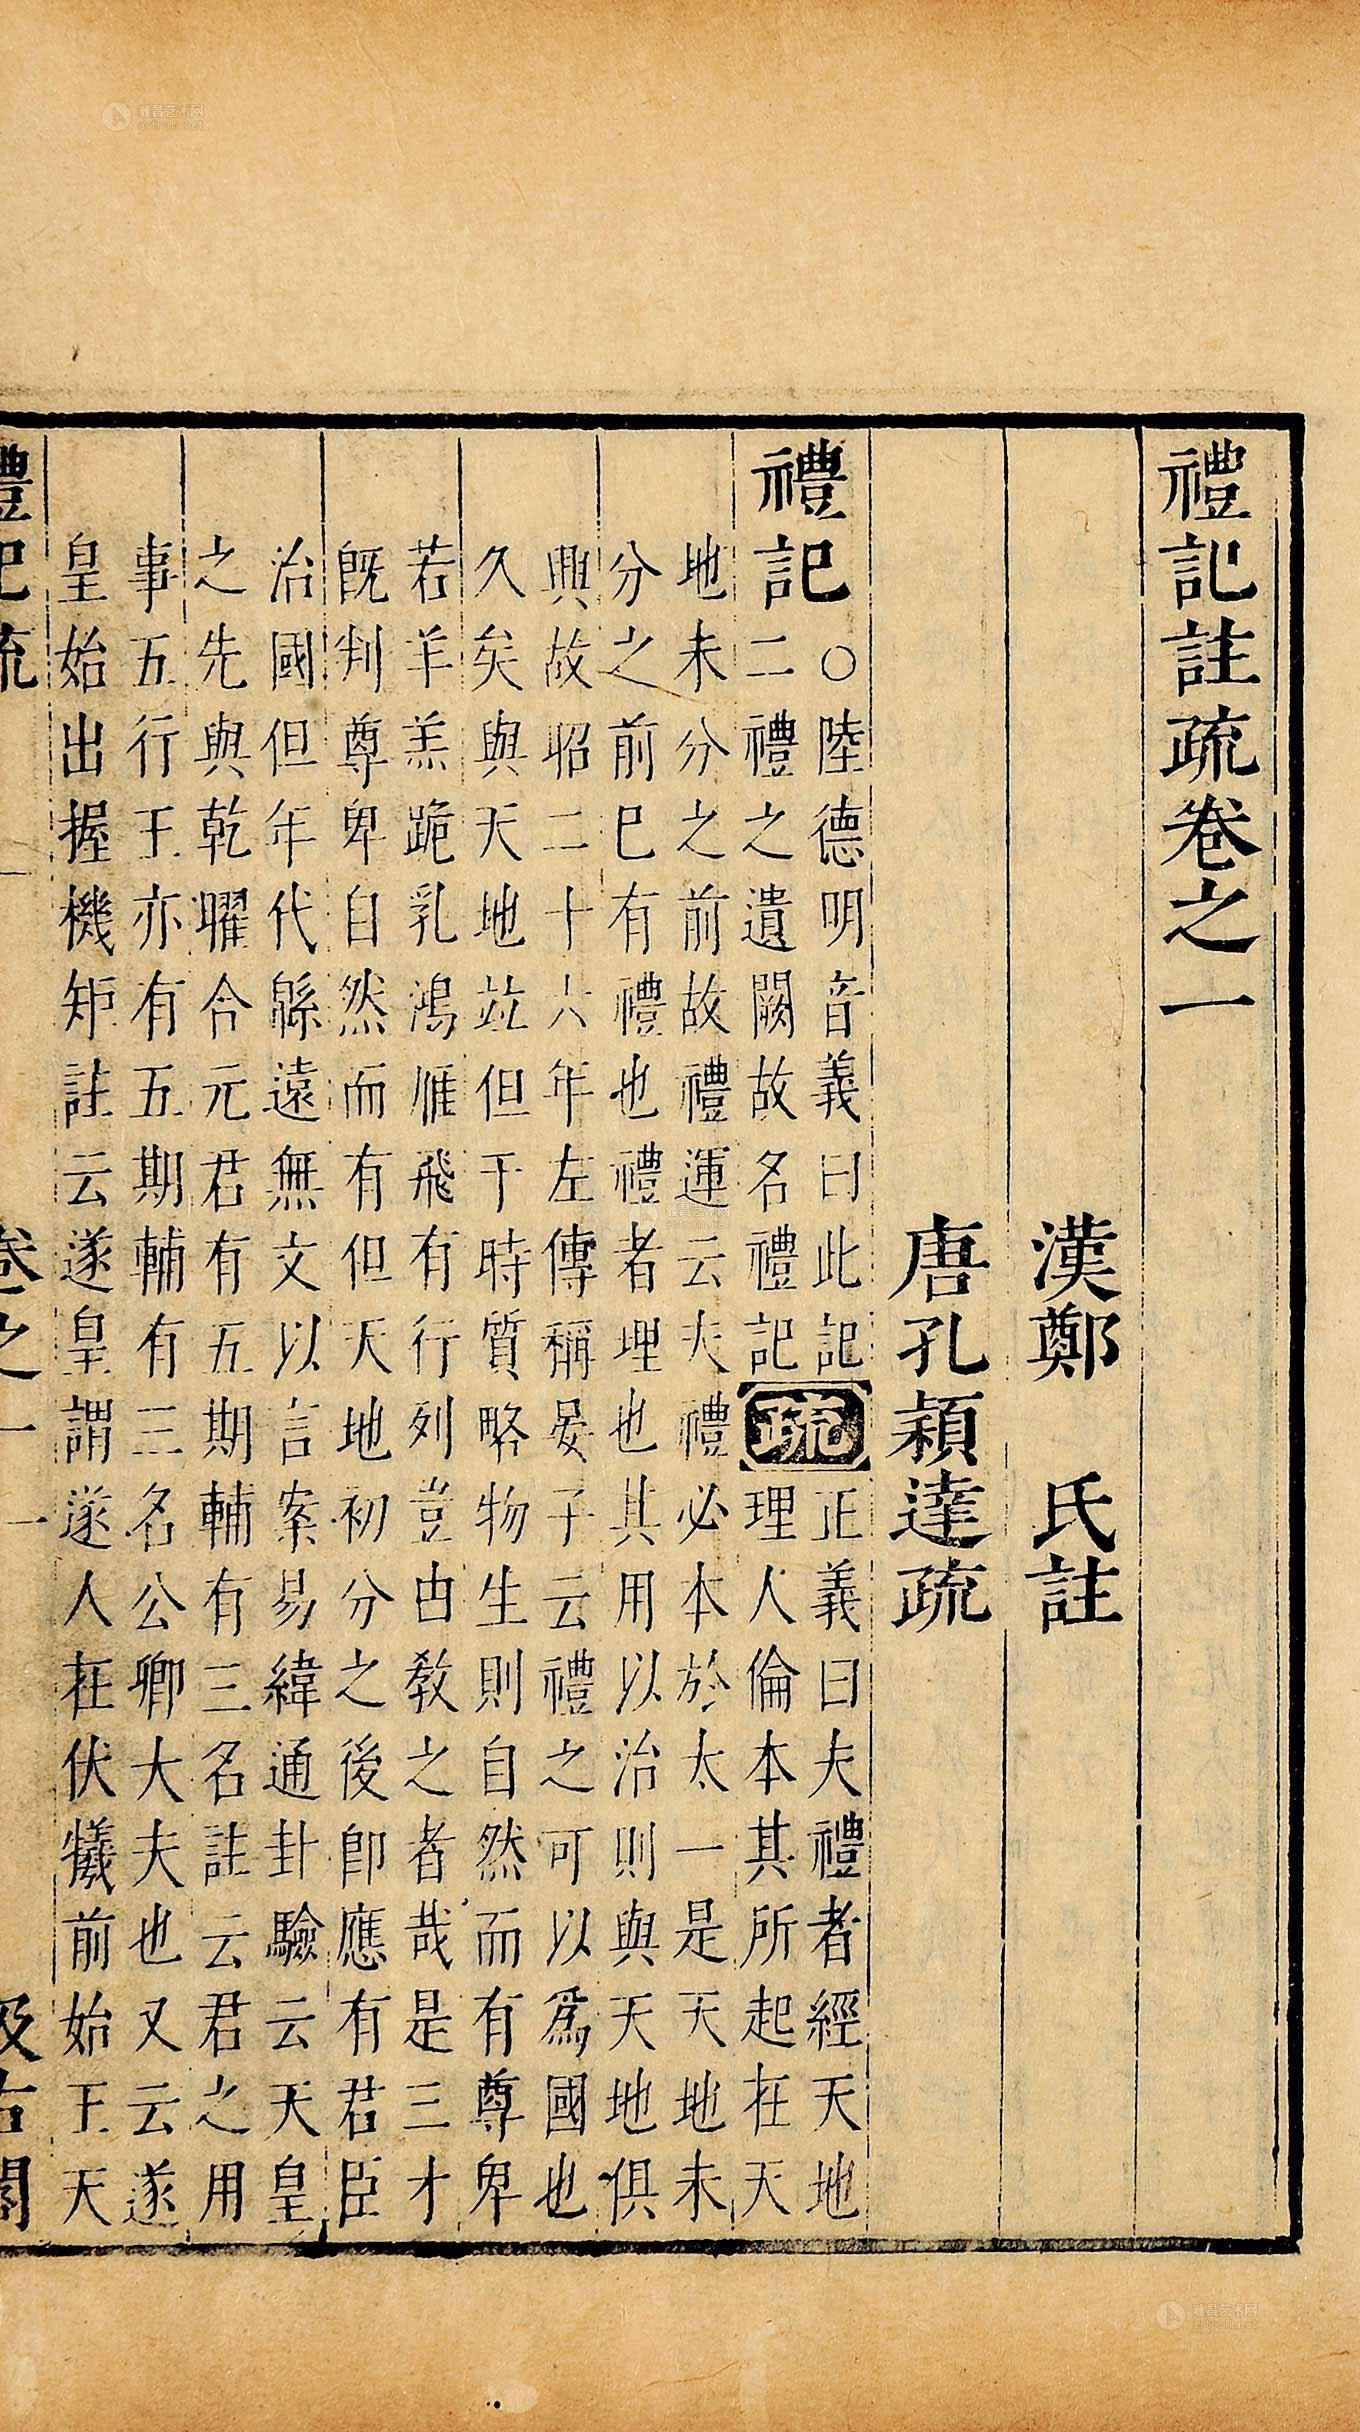 禮記註疏卷之一
漢鄭 氏註
唐孔頴達疏
禮記
○陸德明音義曰此記
二禮之遺闕故名禮記
疏
正義曰夫禮者經天地
理人倫本其所起在天
地未分之前故禮運云夫禮必本於太一是天地未
分之前巳有禮也禮者理也其用以治則與天地俱
興故昭二十六年左傳稱晏子云禮之可以爲國也
久矣與天地竝但于時質略物生則自然而有尊卑
若羊羔跪乳鴻雁飛有行列豈由教之者哉是三才
旣判尊卑自然而有但天地初分之後卽應有君臣
治國但年代緜遠無文以言案易緯通卦驗云天皇
之先與乾曜合元君有五期輔有三名註云君之用
事五行王亦有五期輔有三名公卿大夫也又云遂
皇始出握機矩註云遂皇謂遂人在伏犧前始王天
禮記疏 卷之一 一 汲古閣
雅昌艺术网
artron.net
雅昌艺术网
artron.net